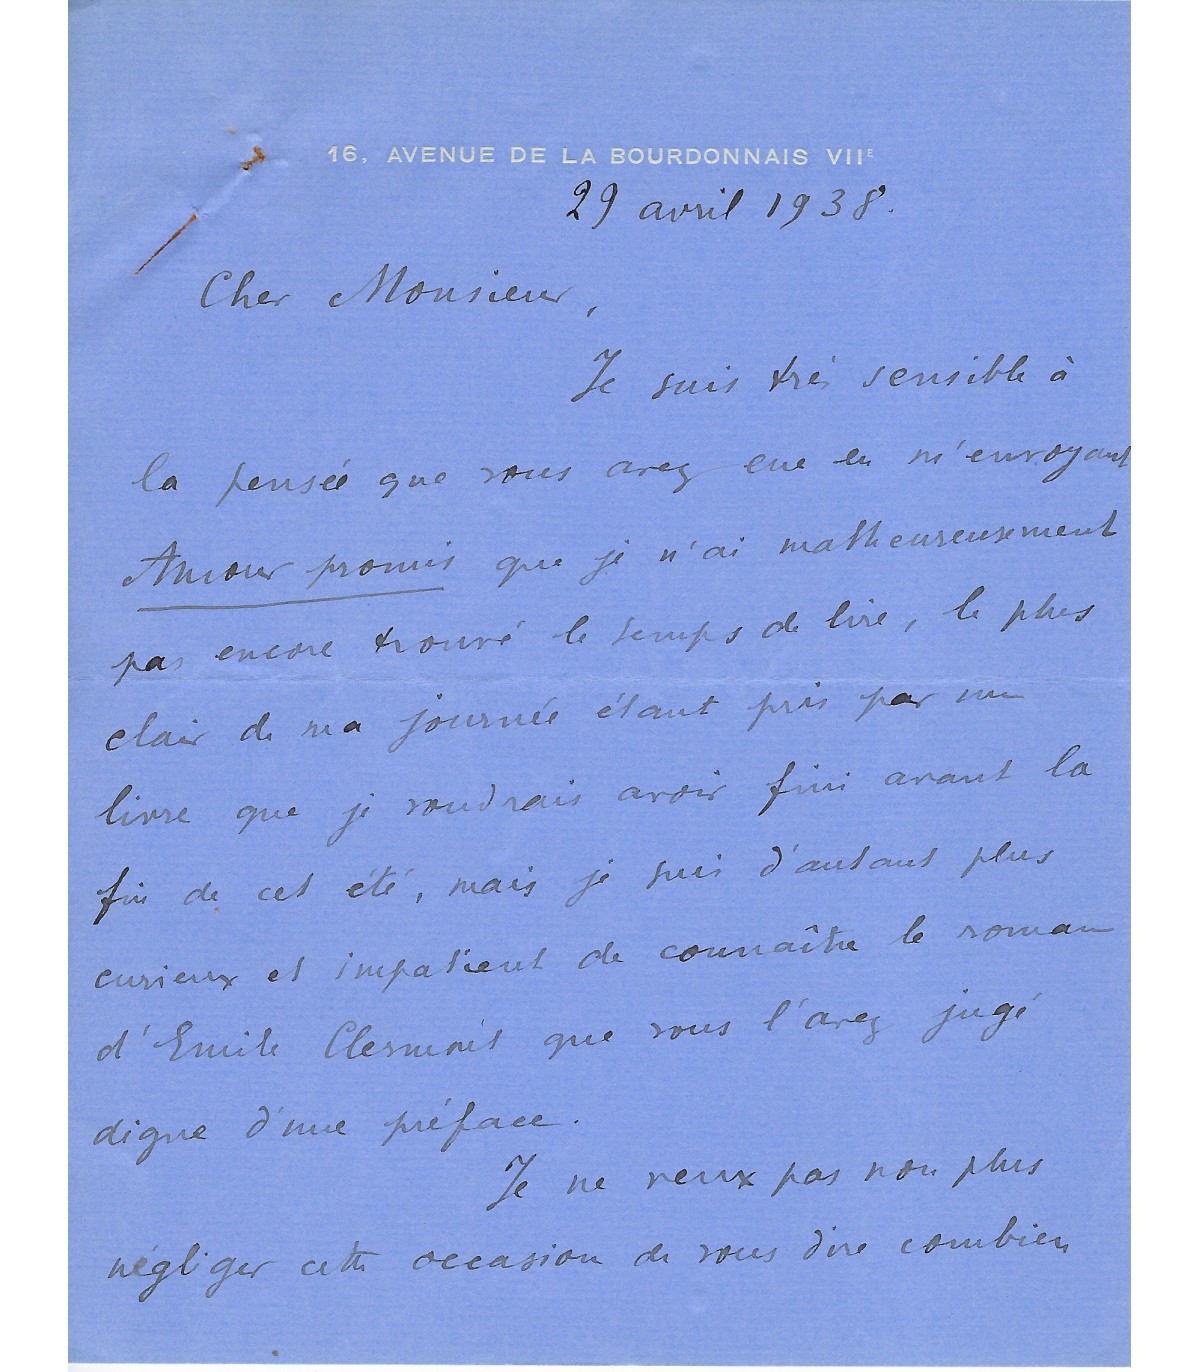 16, AVENUE DE LA BOURDONNAIS VIIE
29 avril 1938.
Cher Monsieur,
Je suis très sensible à
la pensée que vous avez eue en m'envoyant
Amour promis que je n'ai malheureusement
pas encore trouvé le temps de lire, le plus
clair de ma journée étant pris par un
livre que je voudrais avoir fini avant la
fin de cet été, mais je suis d'autant plus
curieux et impatient de connaître le roman
d'Emile Clermont que vous l'avez jugé
digne d'une préface.
Je ne veux pas non plus
négliger cette occasion de vous dire combien